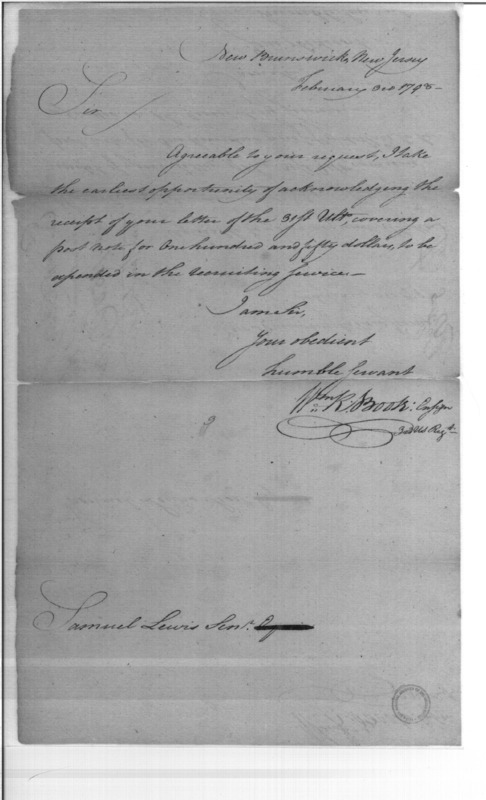 New Brunswick, New Jersey
February 3rd 1798-
Sir
Agreeable to your request, I take
the earliest opportunity of acknowledging the
receipt of your letter of the 31st Ulto, covering a
post note for One hundred and fifty dollars, to be
expended in the recruiting Service.-
I am Sir,
Your obedient
humble Servant
Wm. K. Book: Ensign
3rd US Regt.
Samuel Lewis Senr.